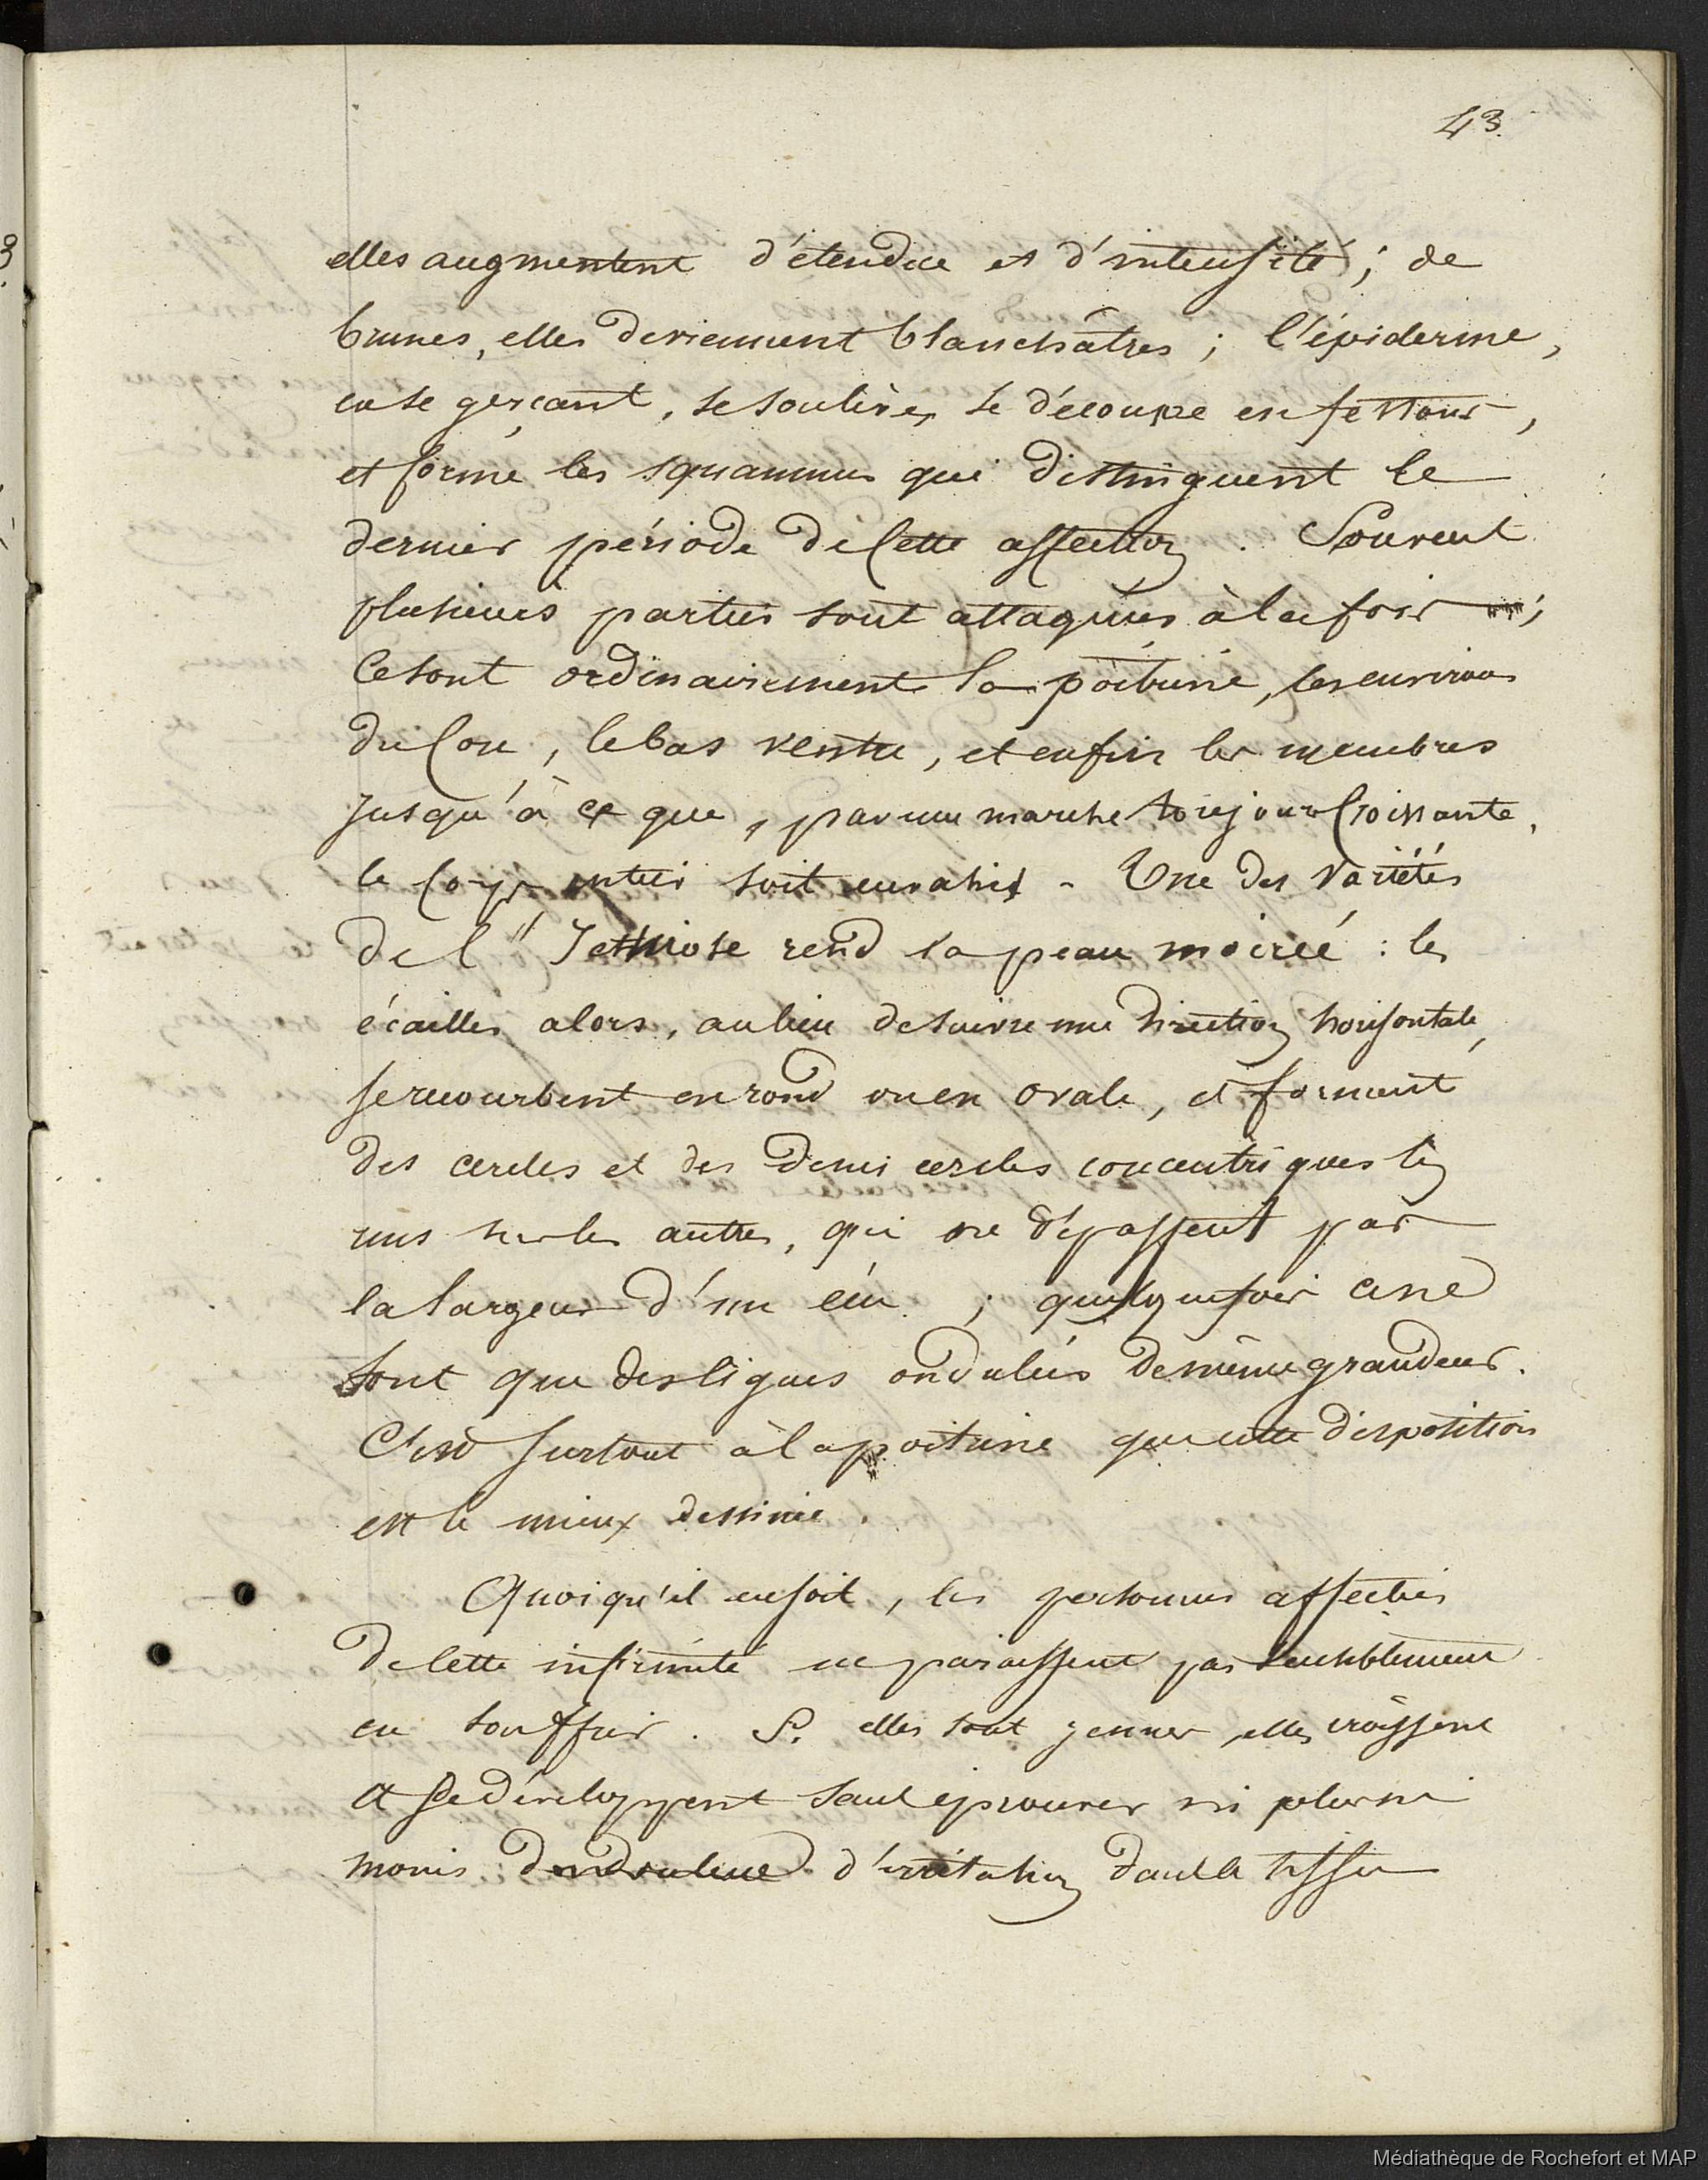 43.
elles augmentent d'étendue et d'intensité ; de
brunes, elles deviennent blanchâtres ; l'épiderme,
en se gerçant, se soulève, se découpe en festons,
et forme les squammes qui distinguent le
dernier période de cette affection. Souvent
plusieurs parties sont attaquées à la fois ;
ce sont ordinairement la poitrine, les environs
du cou, le bas ventre, et enfin les membres
jusqu'à ce que, par une marche toujours croissante,
le corps entier soit envahi. Une des variétés
de l'Icthiose rend la peau moirée : les
écailles alors, au lieu de suivre une direction horisontale,
se recourbent en rond ou en ovale, et forment
des cercles et des demi cercles concentriques les
uns sur les autres, qui ne dépassent pas
la largeur d'un écu ; quelquefois ce ne
sont que des lignes ondulées de même grandeur.
C'est surtout à la poitrine que cette disposition
est le mieux dessinée.
Quoiqu'il en soit, les personnes affectées
de cette infirmité ne paraissent pas sensiblement
en souffrir. Si elles sont jeunes, elles croissent
et se développent sans éprouver ni plus ni
moins d'irritation dans le tissu
Médiathèque de Rochefort et MAP